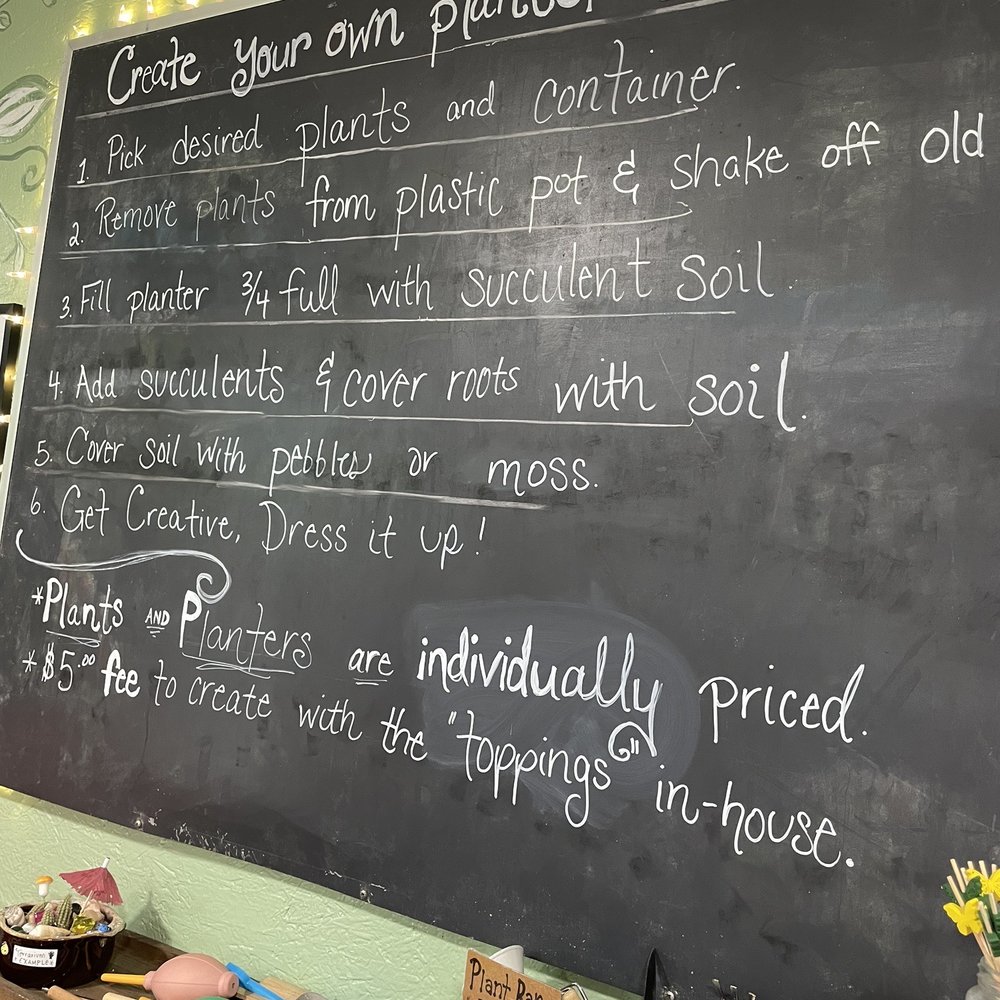 Create your own planter
1. Pick desired plants and container.
2. Remove plants from plastic pot & shake off old
3. Fill planter 3/4 full with succulent soil.
4. Add succulents & cover roots with soil.
5. Cover soil with pebbles or moss.
6. Get Creative, Dress it up!
*Plants AND Planters are individually priced.
*$5.00 fee to create with the "toppings" in-house.
EXAMPLE
Plant Bar